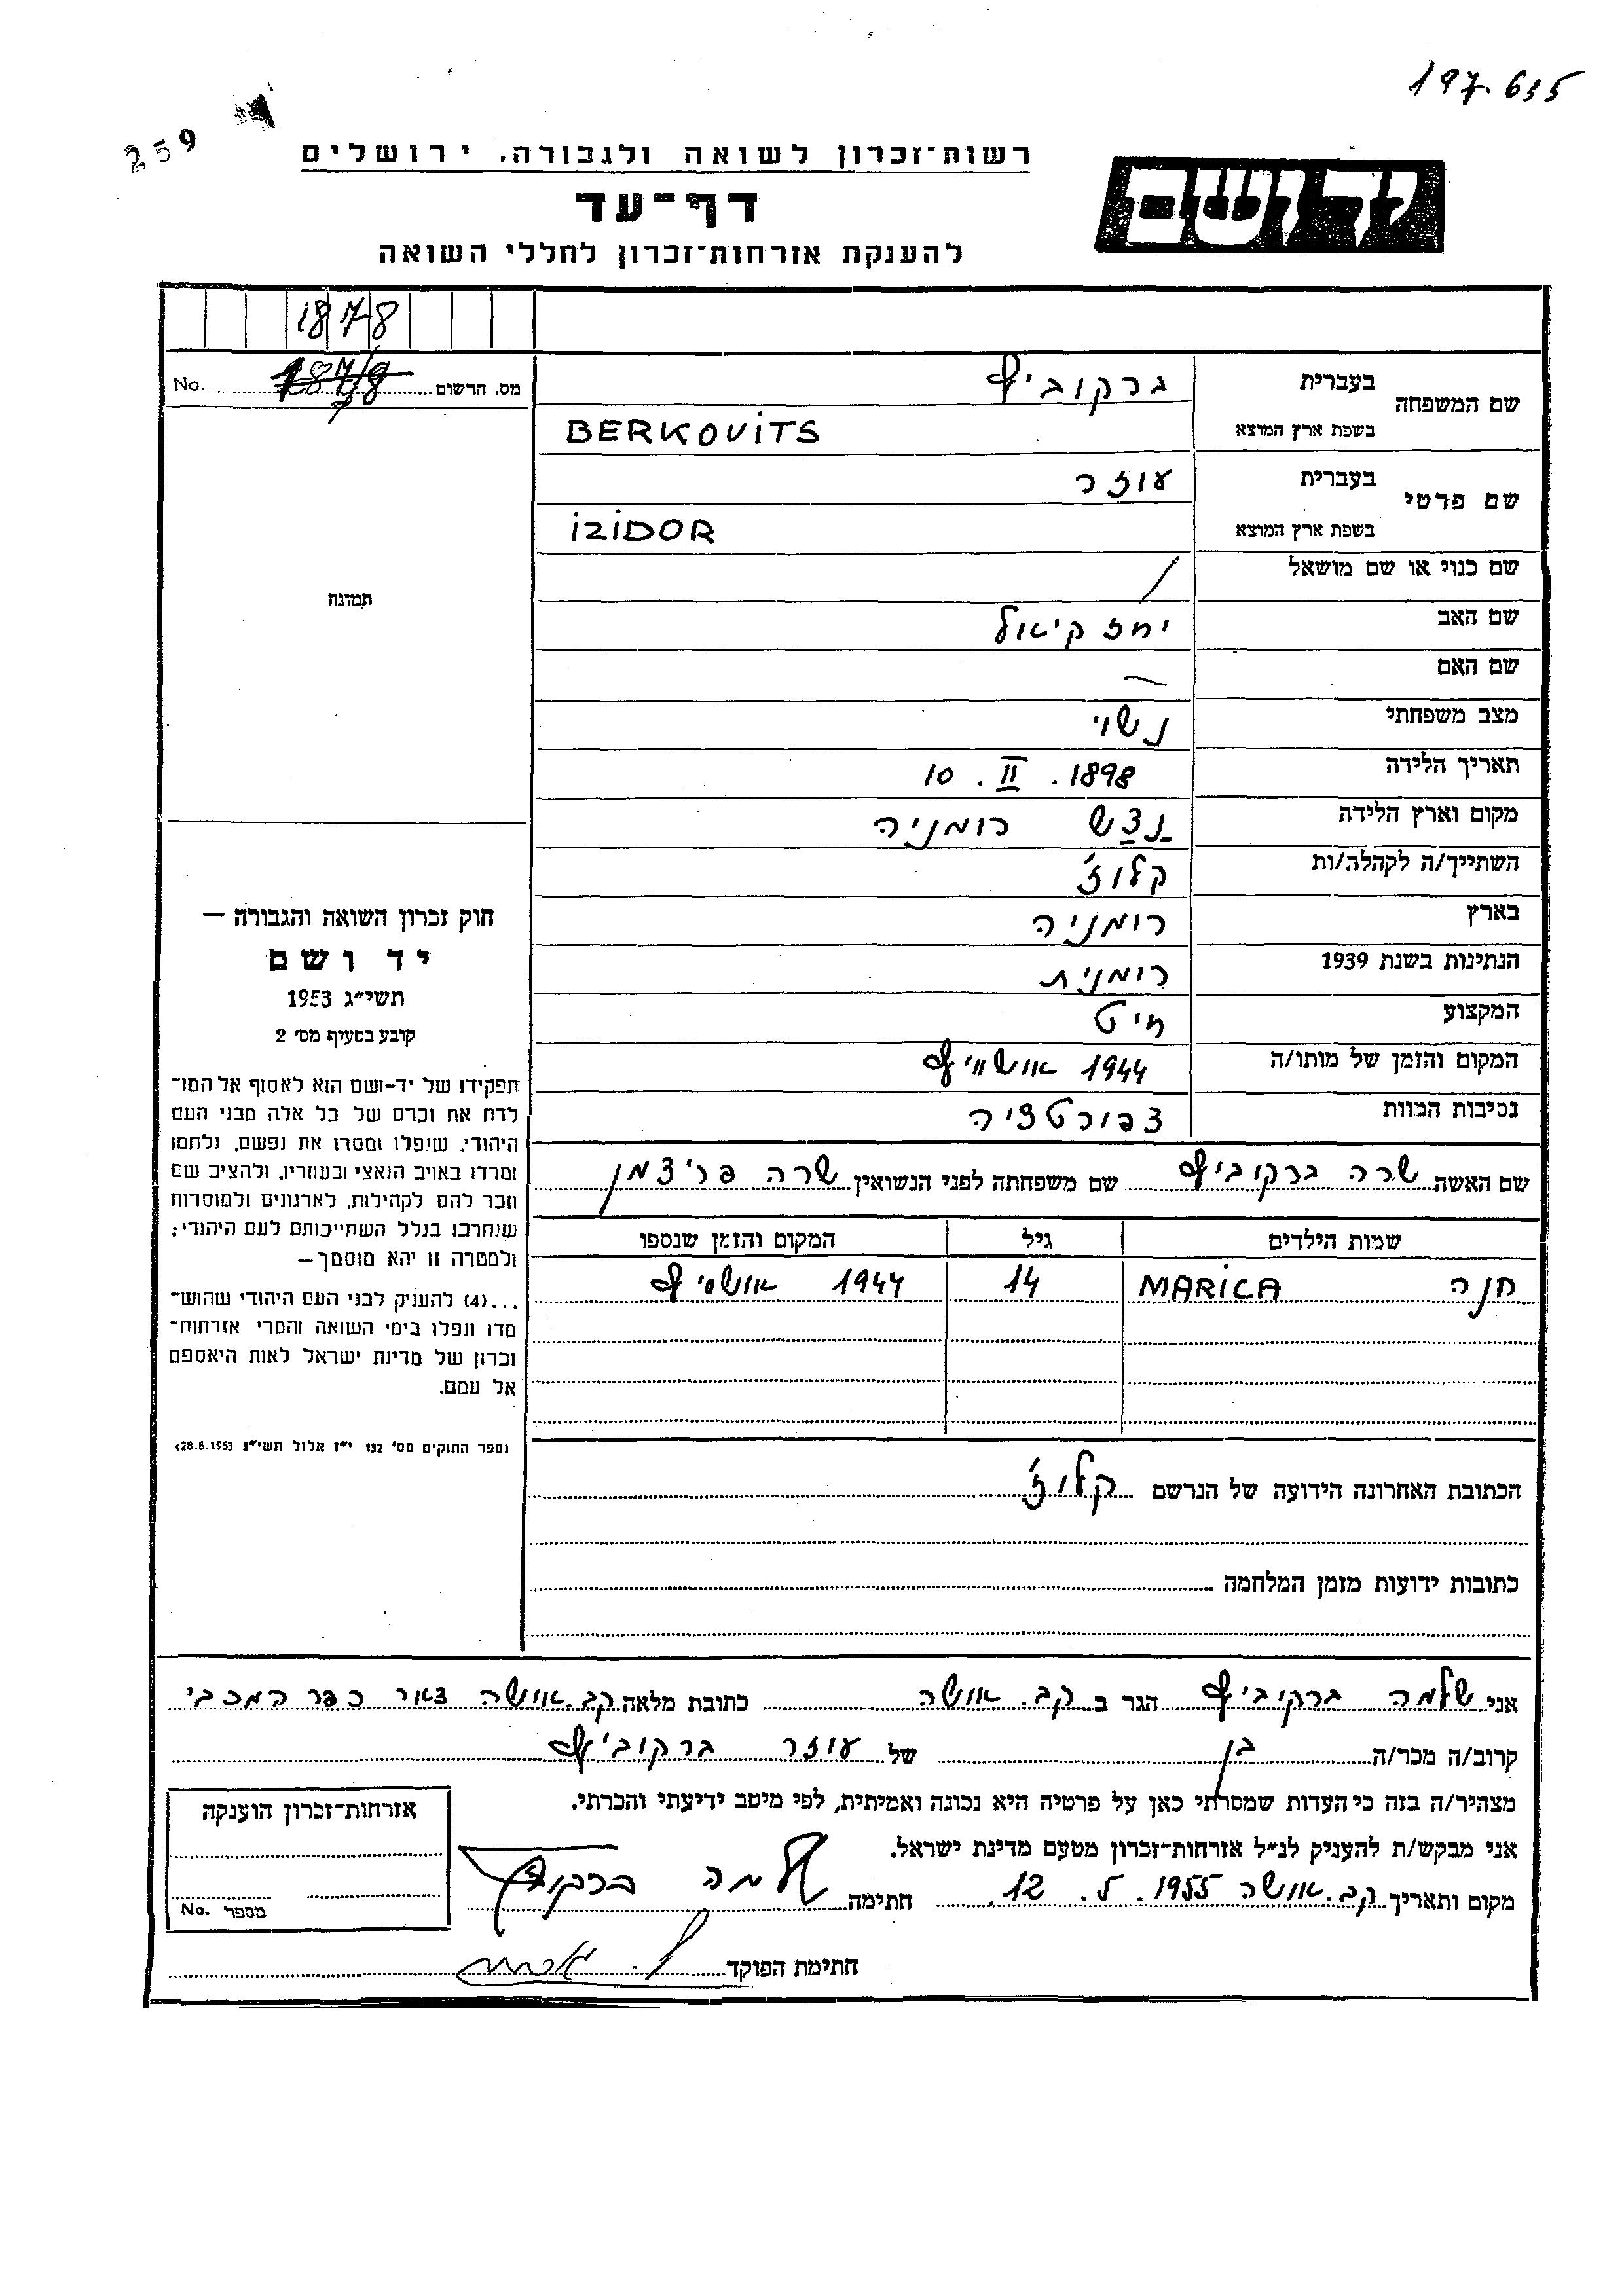 197.635
259
רשות־זכרון לשואה ולגבורה, ירושלים
דף־עד
להענקת אזרחות־זכרון לחללי השואה
יד ושם
1878
מס. הרשום 1878 No.
שם המשפחה
בעברית ברקוביץ
בשפת ארץ המוצא BERKOVITS
שם פרטי
בעברית עוזר
בשפת ארץ המוצא IZIDOR
שם כנוי או שם מושאל /
שם האב יחזקיאל
שם האם —
מצב משפחתי נשוי
תאריך הלידה 10. II. 1898
מקום וארץ הלידה רומניה
השתייך/ה לקהלה/ות קלוז'
בארץ רומניה
הנתינות בשנת 1939 רומנית
המקצוע חיט
המקום והזמן של מותו/ה 1944 אושוויץ
נסיבות המוות דפורטציה
שם האשה שרה ברקוביץ שם משפחתה לפני הנשואין שרה פרידמן
שמות הילדים גיל המקום והזמן שנספו
חנה MARICA 14 1944 אושויץ
הכתובת האחרונה הידועה של הנרשם קלוז'
כתובות ידועות מזמן המלחמה
תמונה
חוק זכרון השואה והגבורה —
יד ושם
תשי״ג 1953
קובע בסעיף מס׳ 2
תפקידו של יד-ושם הוא לאסוף אל המו־
לדת את זכרם של כל אלה מבני העם
היהודי, שנפלו ומסרו את נפשם, נלחמו
ומרדו באויב הנאצי ובעוזריו, ולהציב שם
וזכר להם לקהילות, לארגונים ולמוסדות
שנחרבו בגלל השתייכותם לעם היהודי;
ולמטרה זו יהא מוסמך—
...(4) להעניק לבני העם היהודי שהוש־
מדו ונפלו בימי השואה והמרי אזרחות־
זכרון של מדינת ישראל לאות היאספם
אל עמם.
(ספר החוקים מס׳ 132 י״ז אלול תשי״ג 28.8.1953)
אני שלמה ברקוביץ הגר ב קב. אושה כתובת מלאה קב. אושה דאר כפר המכבי
קרוב/ה מכר/ה בן של עוזר ברקוביץ
מצהיר/ה בזה כי העדות שמסרתי כאן על פרטיה היא נכונה ואמיתית, לפי מיטב ידיעתי והכרתי.
אני מבקש/ת להעניק לנ״ל אזרחות־זכרון מטעם מדינת ישראל.
מקום ותאריך קב. אושה 12. 5. 1955 חתימה שלמה ברקוביץ
חתימת הפוקד
אזרחות־זכרון הוענקה
מספר No.